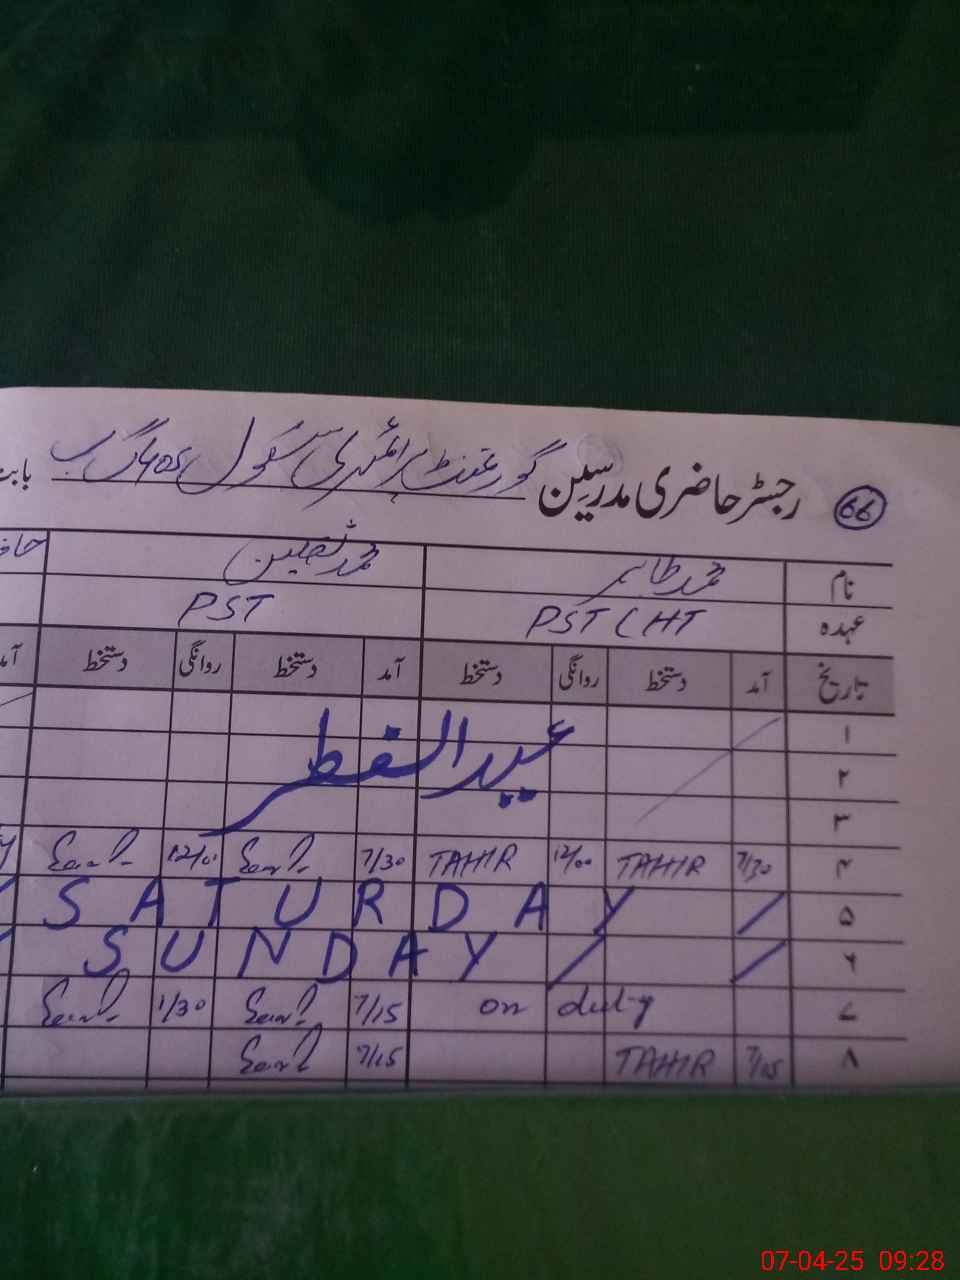 66 رجسٹر حاضری مدرسین گورنمنٹ پرائمری سکول 405 گ ب بابت
نام محمد طاہر محمد ثقلین
عہدہ PST / HT PST
تاریخ آمد دستخط روانگی دستخط آمد دستخط روانگی دستخط آمد
۱
عید الفطر
۲
۳
۴ 7/30 TAHIR 12/00 TAHIR 7/30 12/01
۵ SATURDAY
۶ SUNDAY
۷ on duty 7/15 1/30
۸ 7/15 TAHIR 7/15
07-04-25 09:28